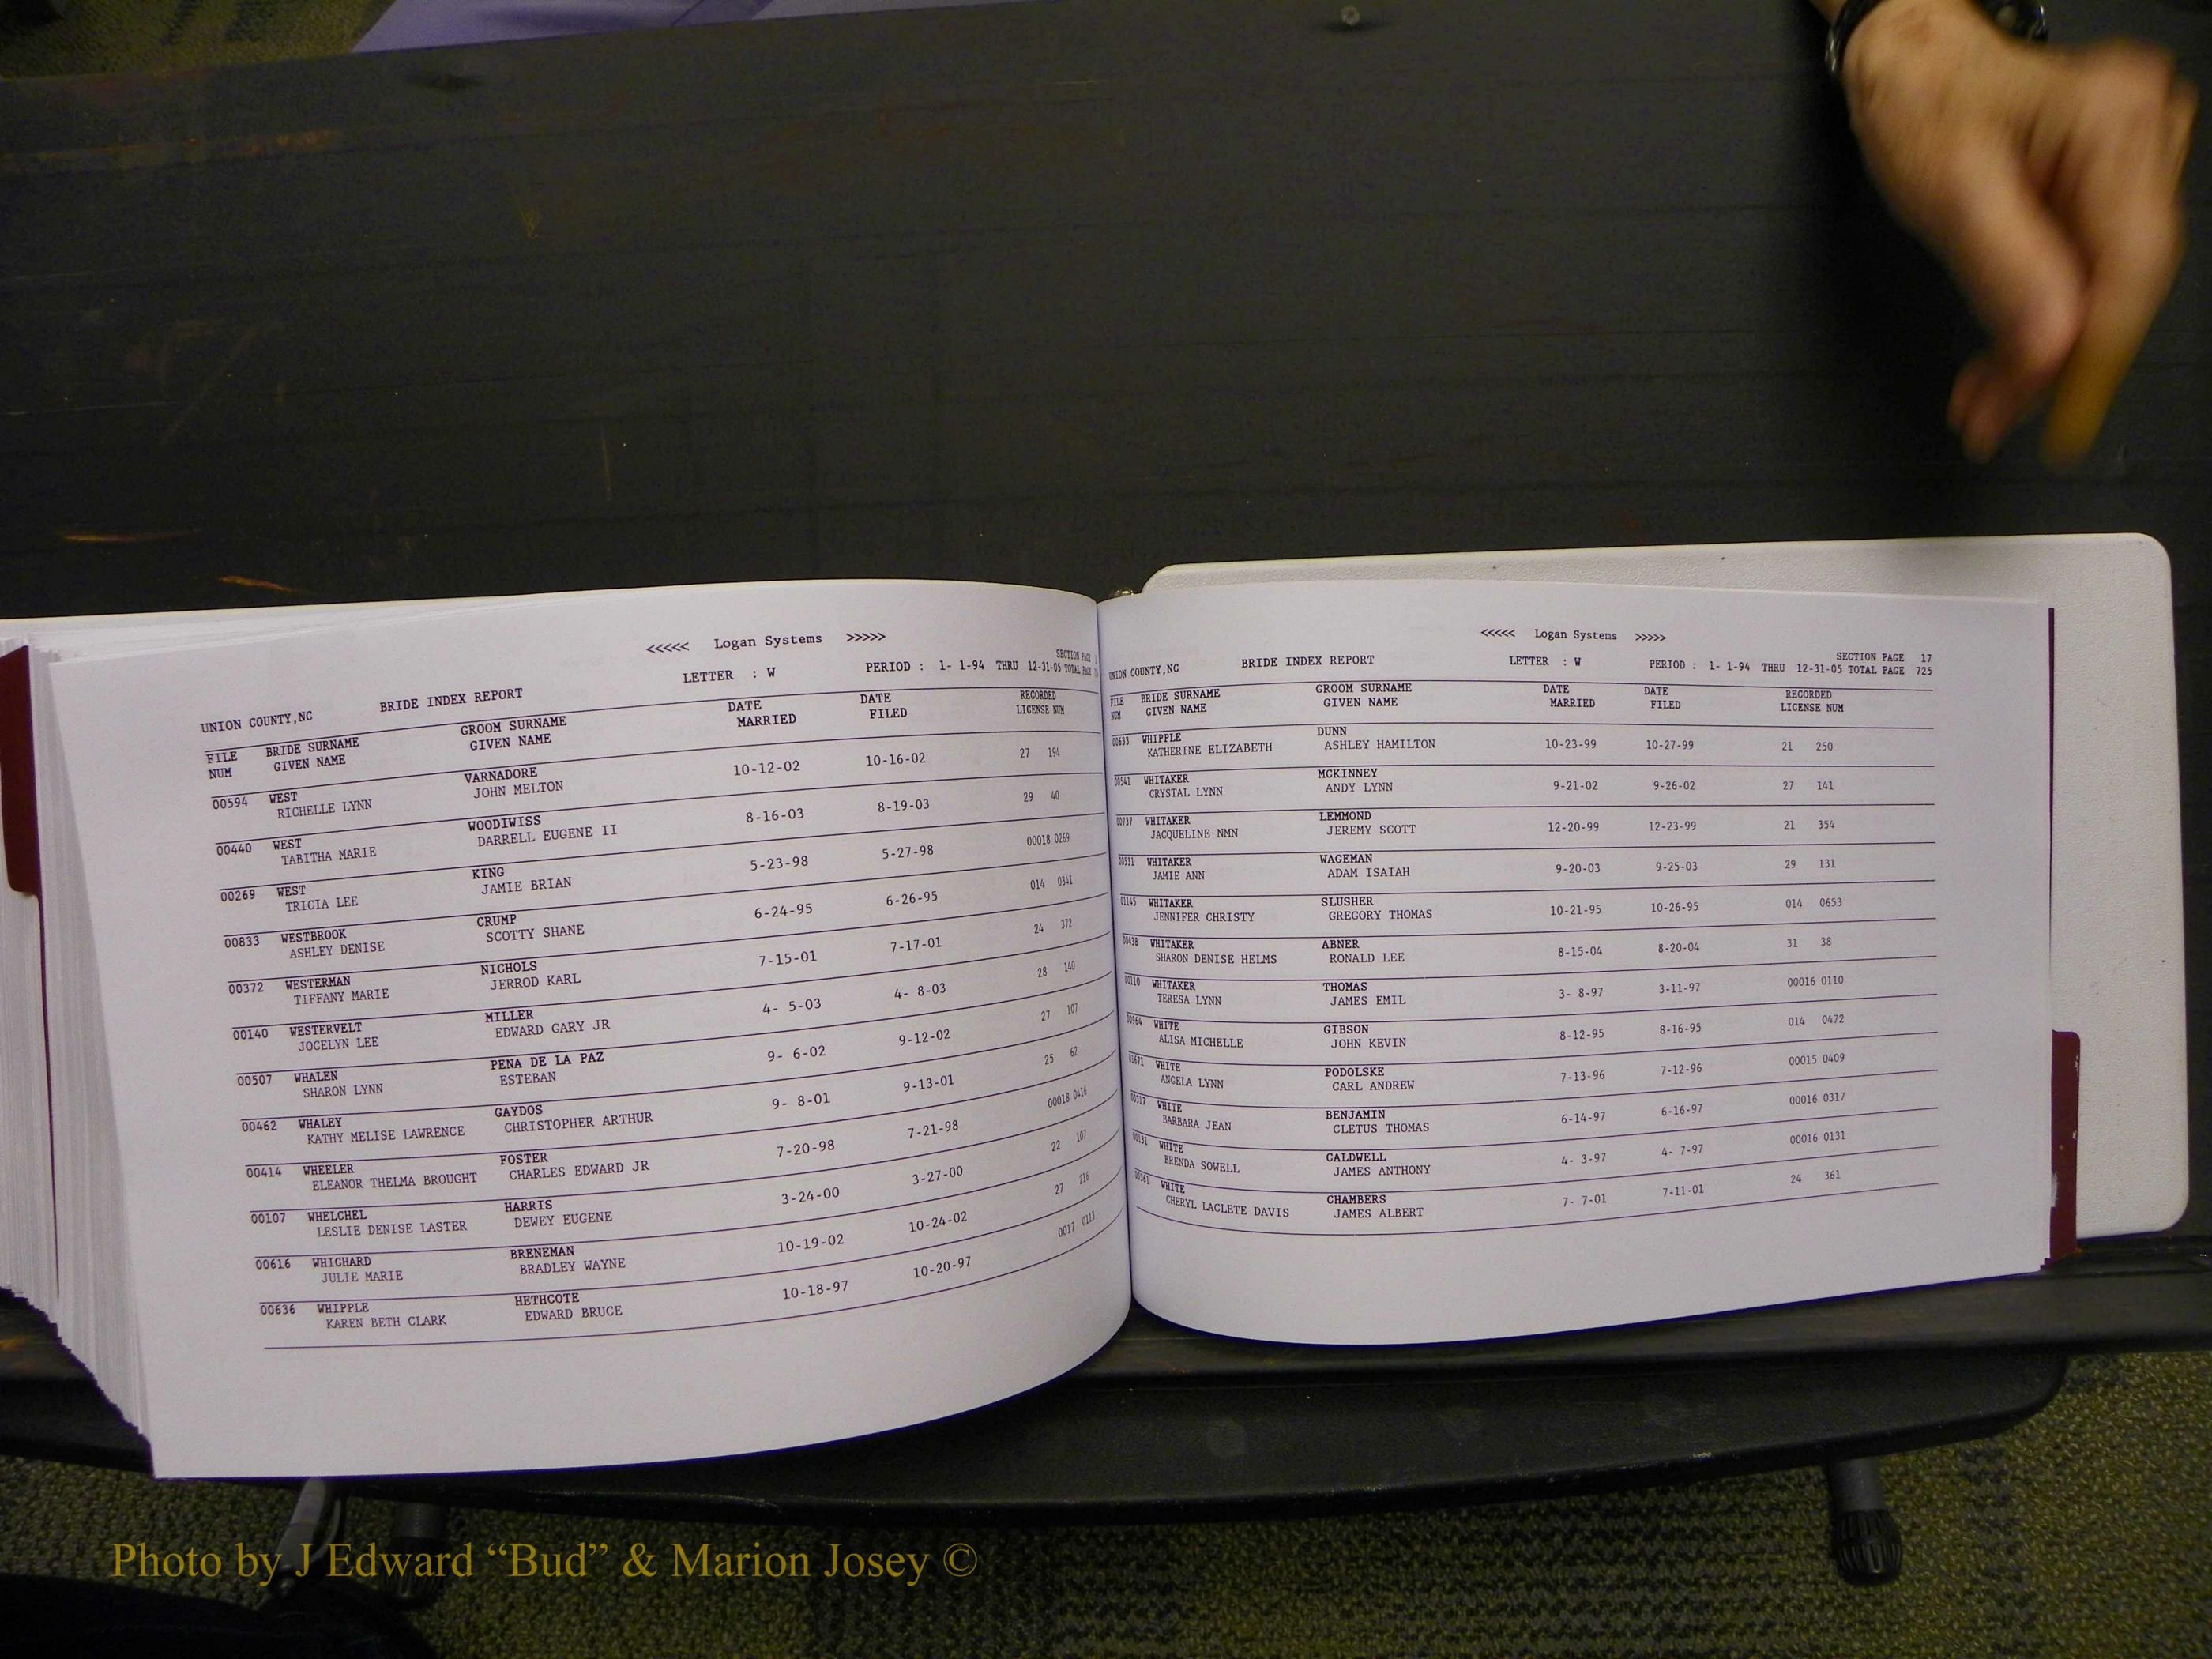 <<<<< Logan Systems >>>>>
SECTION PAGE
UNION COUNTY,NC BRIDE INDEX REPORT LETTER : W PERIOD : 1- 1-94 THRU 12-31-05 TOTAL PAGE
FILE BRIDE SURNAME GROOM SURNAME DATE DATE RECORDED
NUM GIVEN NAME GIVEN NAME MARRIED FILED LICENSE NUM
00594 WEST VARNADORE 10-12-02 10-16-02 27 194
RICHELLE LYNN JOHN MELTON
00440 WEST WOODIWISS 8-16-03 8-19-03 29 40
TABITHA MARIE DARRELL EUGENE II
00269 WEST KING 5-23-98 5-27-98 00018 0269
TRICIA LEE JAMIE BRIAN
00833 WESTBROOK CRUMP 6-24-95 6-26-95 014 0341
ASHLEY DENISE SCOTTY SHANE
00372 WESTERMAN NICHOLS 7-15-01 7-17-01 24 372
TIFFANY MARIE JERROD KARL
00140 WESTERVELT MILLER 4- 5-03 4- 8-03 28 140
JOCELYN LEE EDWARD GARY JR
00507 WHALEN PENA DE LA PAZ 9- 6-02 9-12-02 27 107
SHARON LYNN ESTEBAN
00462 WHALEY GAYDOS 9- 8-01 9-13-01 25 62
KATHY MELISE LAWRENCE CHRISTOPHER ARTHUR
00414 WHEELER FOSTER 7-20-98 7-21-98 00018 0416
ELEANOR THELMA BROUGHT CHARLES EDWARD JR
00107 WHELCHEL HARRIS 3-24-00 3-27-00 22 107
LESLIE DENISE LASTER DEWEY EUGENE
00616 WHICHARD BRENEMAN 10-19-02 10-24-02 27 216
JULIE MARIE BRADLEY WAYNE
00636 WHIPPLE HETHCOTE 10-18-97 10-20-97 0017 0113
KAREN BETH CLARK EDWARD BRUCE
<<<<< Logan Systems >>>>>
SECTION PAGE 17
UNION COUNTY,NC BRIDE INDEX REPORT LETTER : W PERIOD : 1- 1-94 THRU 12-31-05 TOTAL PAGE 725
FILE BRIDE SURNAME GROOM SURNAME DATE DATE RECORDED
NUM GIVEN NAME GIVEN NAME MARRIED FILED LICENSE NUM
00633 WHIPPLE DUNN 10-23-99 10-27-99 21 250
KATHERINE ELIZABETH ASHLEY HAMILTON
00541 WHITAKER MCKINNEY 9-21-02 9-26-02 27 141
CRYSTAL LYNN ANDY LYNN
00737 WHITAKER LEMMOND 12-20-99 12-23-99 21 354
JACQUELINE NMN JEREMY SCOTT
00531 WHITAKER WAGEMAN 9-20-03 9-25-03 29 131
JAMIE ANN ADAM ISAIAH
01145 WHITAKER SLUSHER 10-21-95 10-26-95 014 0653
JENNIFER CHRISTY GREGORY THOMAS
00438 WHITAKER ABNER 8-15-04 8-20-04 31 38
SHARON DENISE HELMS RONALD LEE
00110 WHITAKER THOMAS 3- 8-97 3-11-97 00016 0110
TERESA LYNN JAMES EMIL
00964 WHITE GIBSON 8-12-95 8-16-95 014 0472
ALISA MICHELLE JOHN KEVIN
01671 WHITE PODOLSKE 7-13-96 7-12-96 00015 0409
ANGELA LYNN CARL ANDREW
00317 WHITE BENJAMIN 6-14-97 6-16-97 00016 0317
BARBARA JEAN CLETUS THOMAS
00131 WHITE CALDWELL 4- 3-97 4- 7-97 00016 0131
BRENDA SOWELL JAMES ANTHONY
00361 WHITE CHAMBERS 7- 7-01 7-11-01 24 361
CHERYL LACLETE DAVIS JAMES ALBERT
Photo by J Edward “Bud” & Marion Josey ©